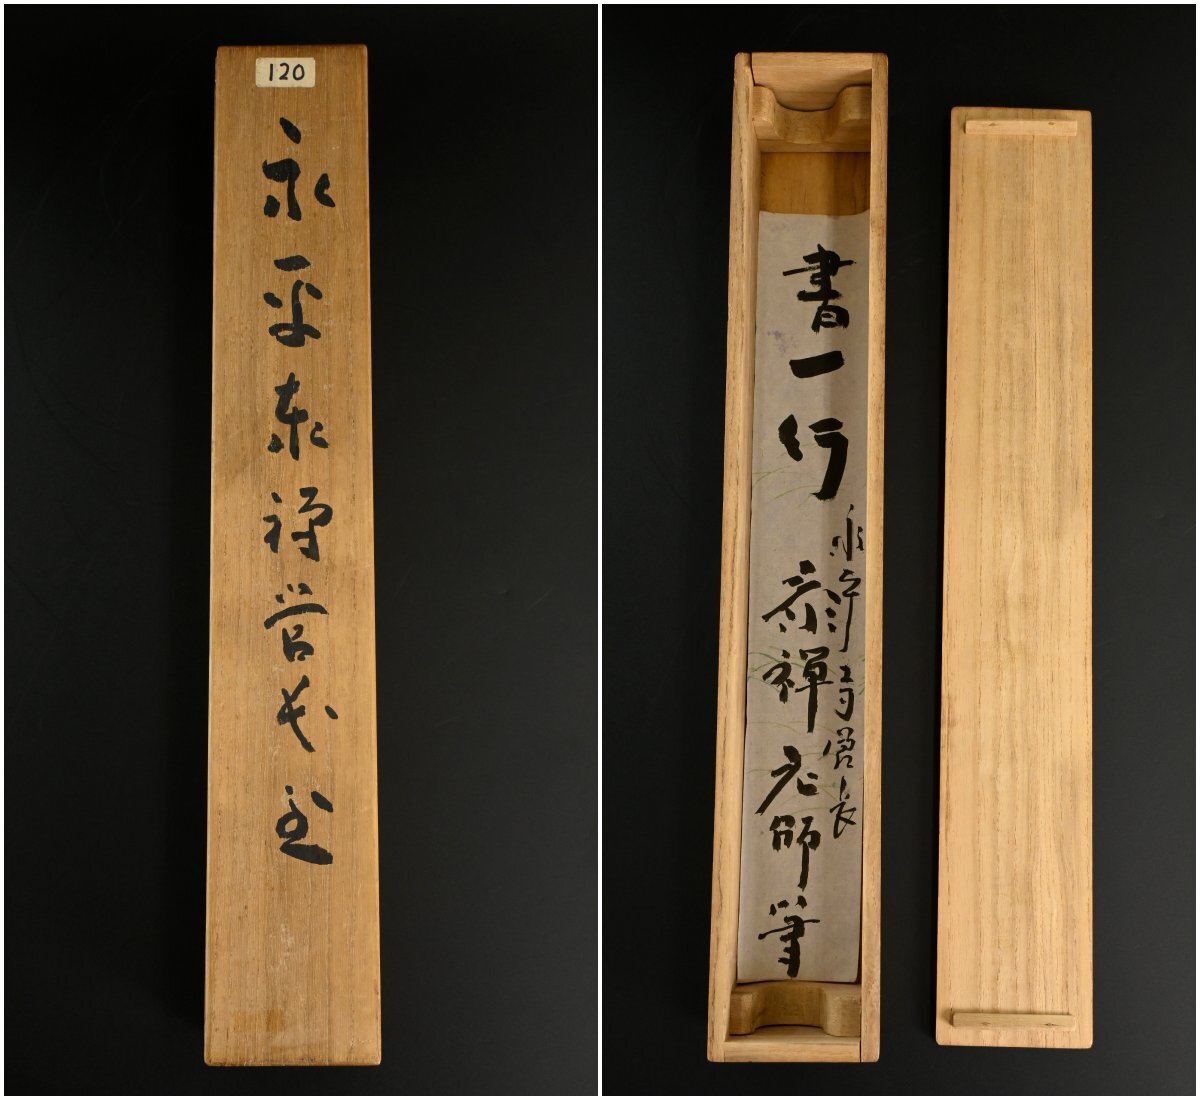 120
永平泰禅管長書
書一行
永平寺管長
泰禅老師筆